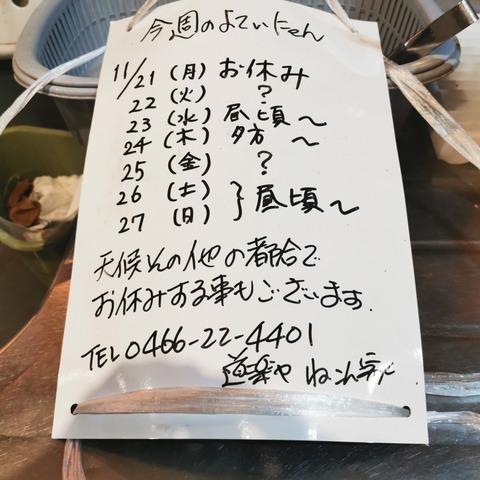 今週のよてい
11/21 (月) お休み
22 (火) ?
23 (水) 昼頃〜
24 (木) 夕方〜
25 (金) ?
26 (土)
27 (日) } 昼頃〜
天候その他の都合で
お休みする事もございます.
TEL 0466-22-4401
道楽や